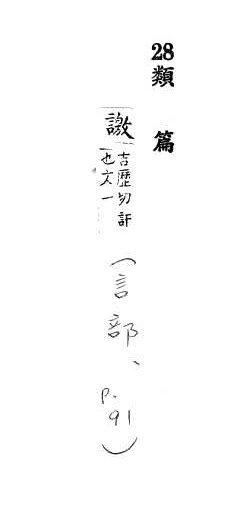 28類篇
譤吉歷切訐
也文一
(言部、p.91)